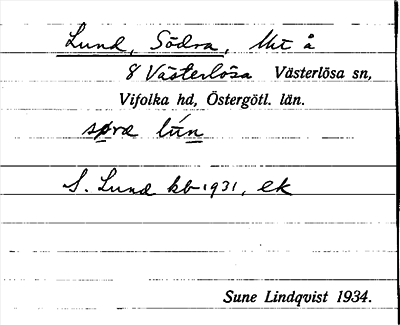 Lund, Södra, Uht å
8 Västerlösa Västerlösa sn,
Vifolka hd, Östergötl. län.
sørα lún
S. Lund kb 1931, ek
Sune Lindqvist 1934.